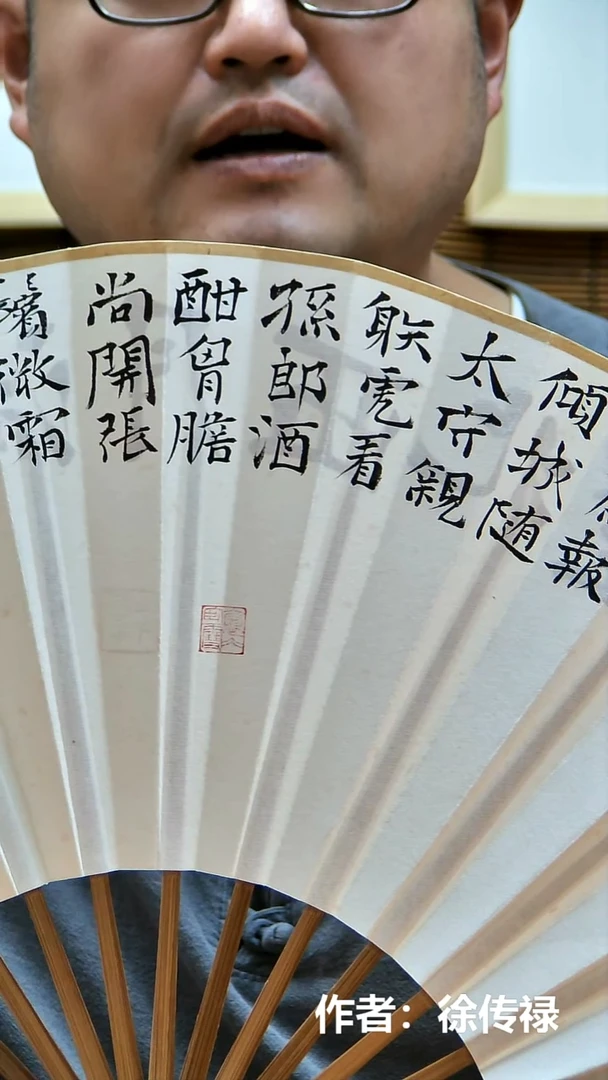 報
傾城随
太守親
䠶虎看
孫郎酒
酣胷膽
尚開張
鬢微霜
作者：徐传禄